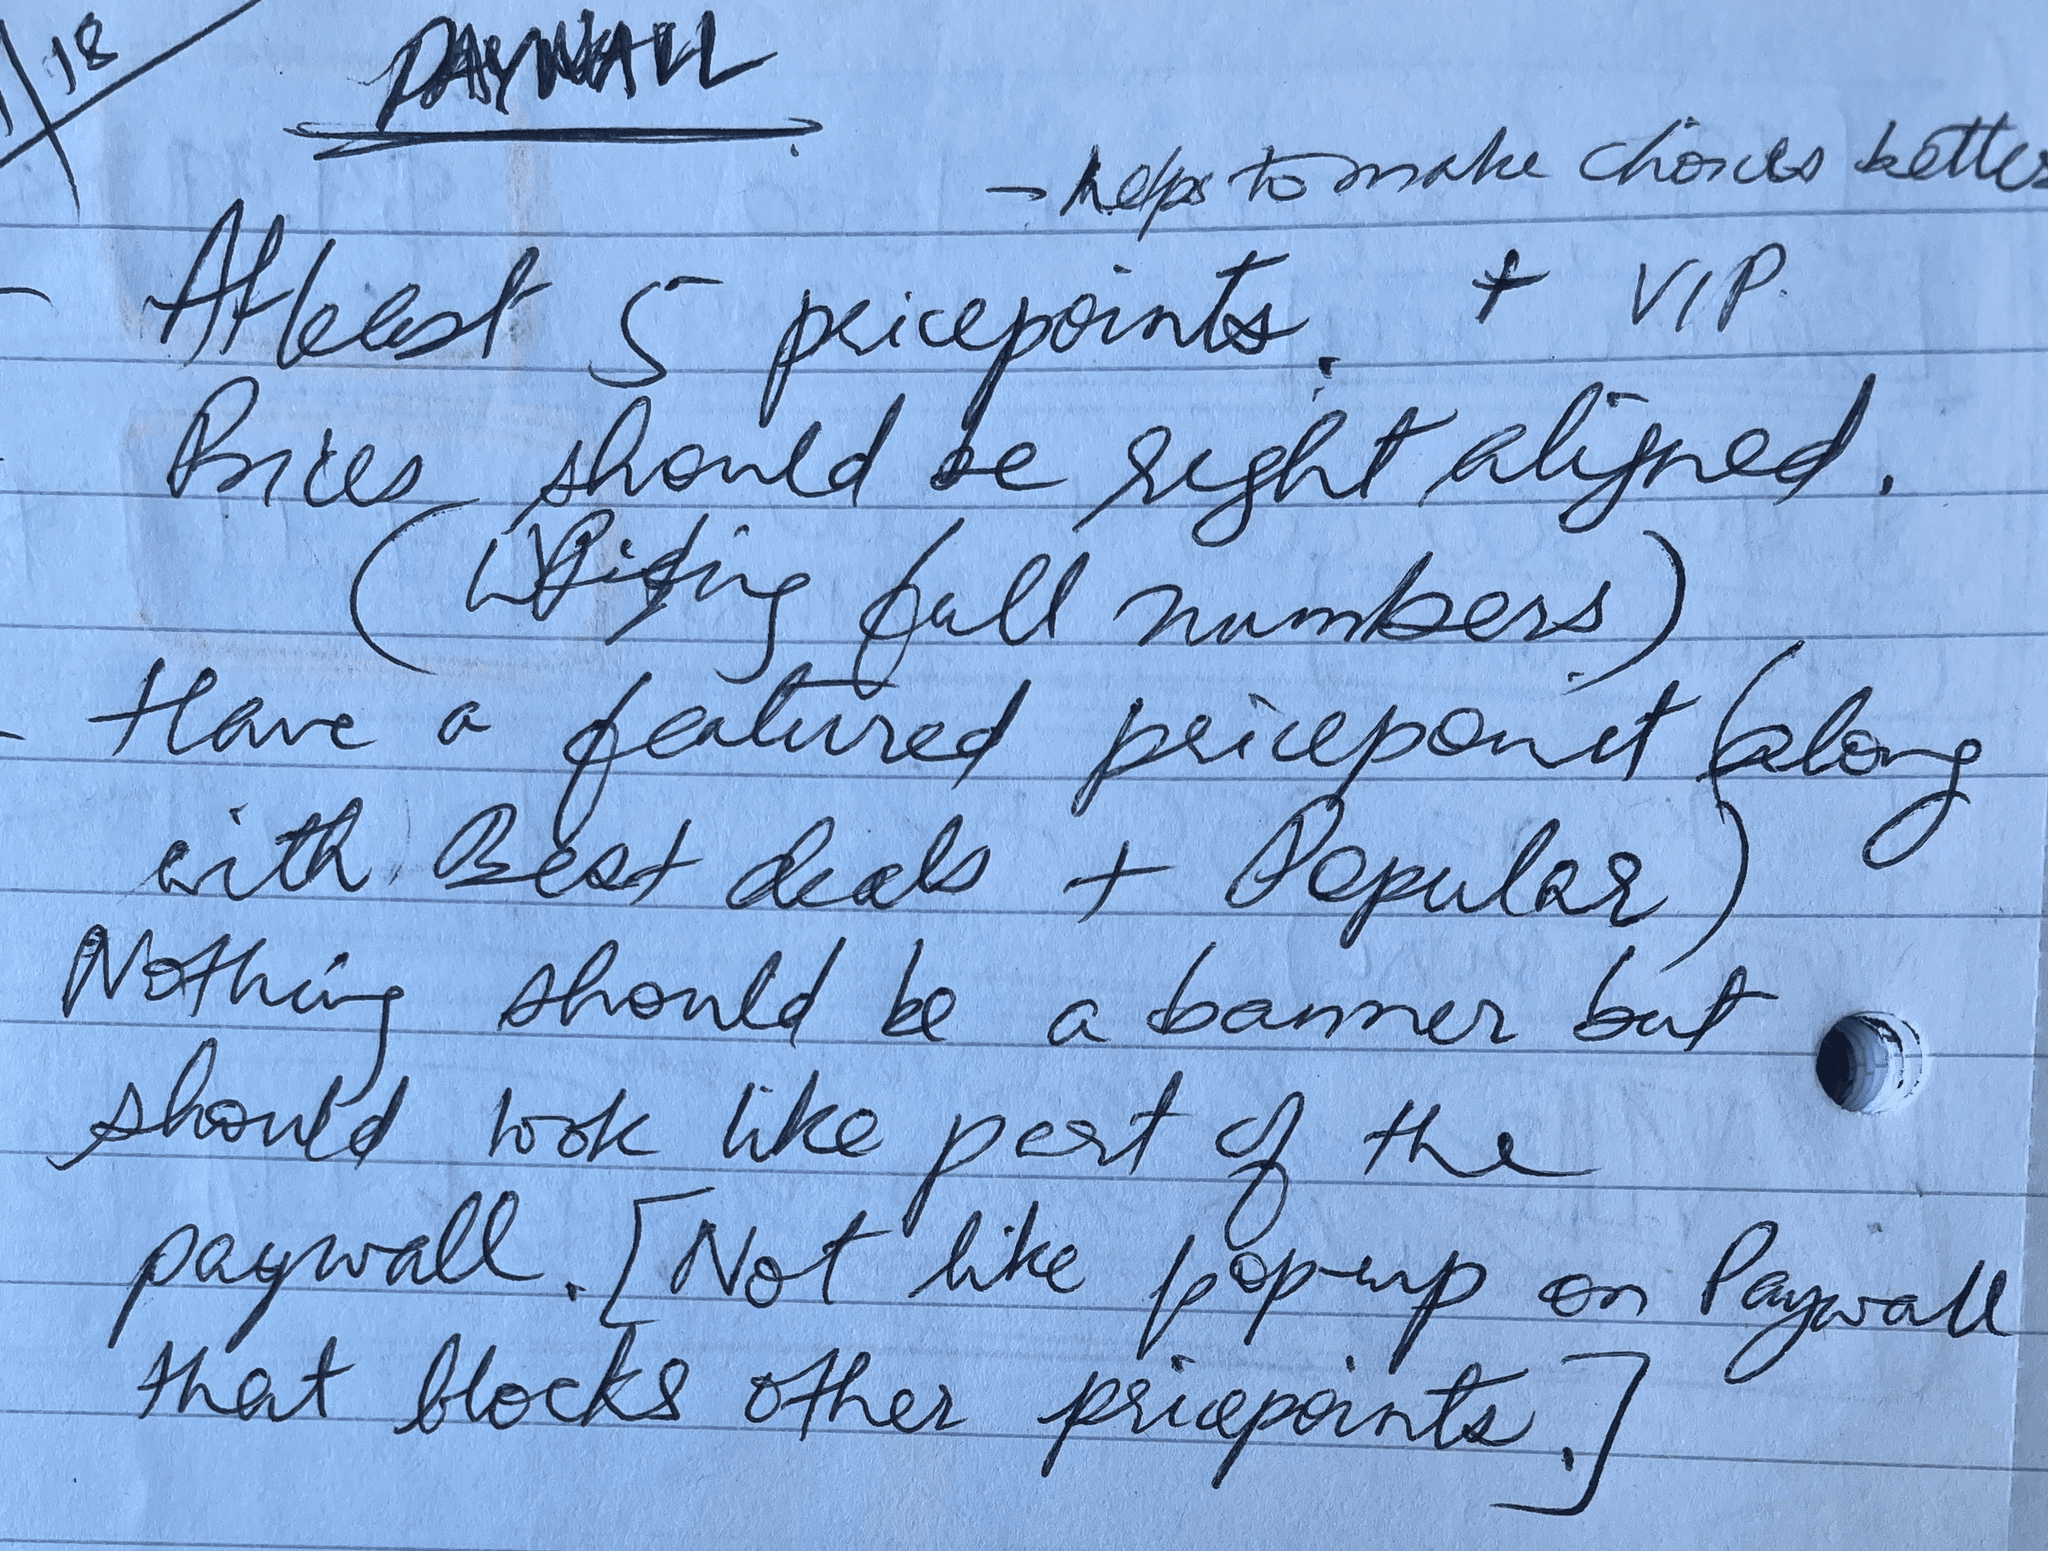 18
PAYWALL
→ helps to make choices better
- Atleast 5 pricepoints. + VIP.
- Prices should be right aligned.
( full numbers)
- Have a featured pricepoint (along
with Best deals + Popular)
Nothing should be a banner but
should look like part of the
paywall. [Not like pop-up on Paywall
that blocks other pricepoints.]